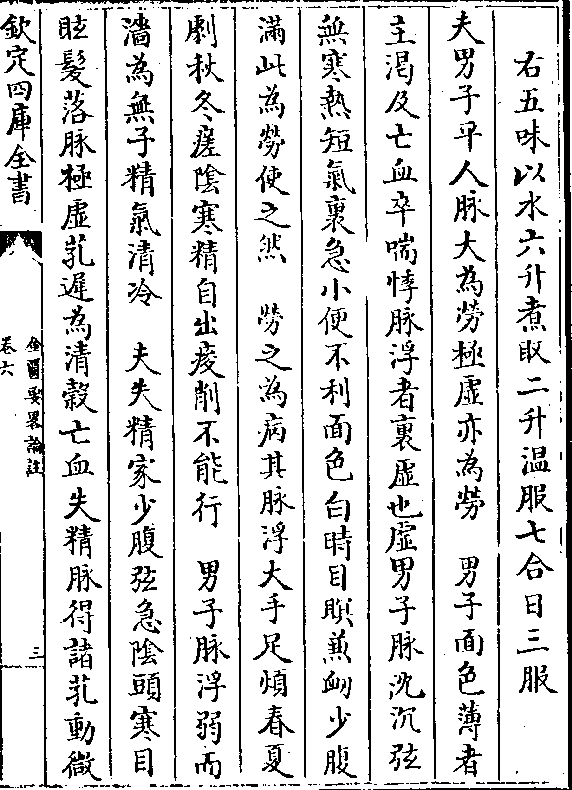 右五味以水六升煮取二升温服七合日三服
夫男子平人脉大為勞極虛亦為勞　男子面色薄者
主渴及亡血卒喘悸脉浮者裏虛也虛男子脉沈沉弦
無寒熱短氣裏急小便不利面色白時目瞑兼衂少腹
滿此為勞使之然　勞之為病其脉浮大手足煩春夏
劇秋冬瘥陰寒精自出痠削不能行　男子脉浮弱而
濇為無子精氣清冷　夫失精家少腹弦急陰頭寒目
眩髮落脉極虛芤遲為清穀亡血失精脉得諸芤動微
欽定四庫全書
金匱要畧論註
卷六
三